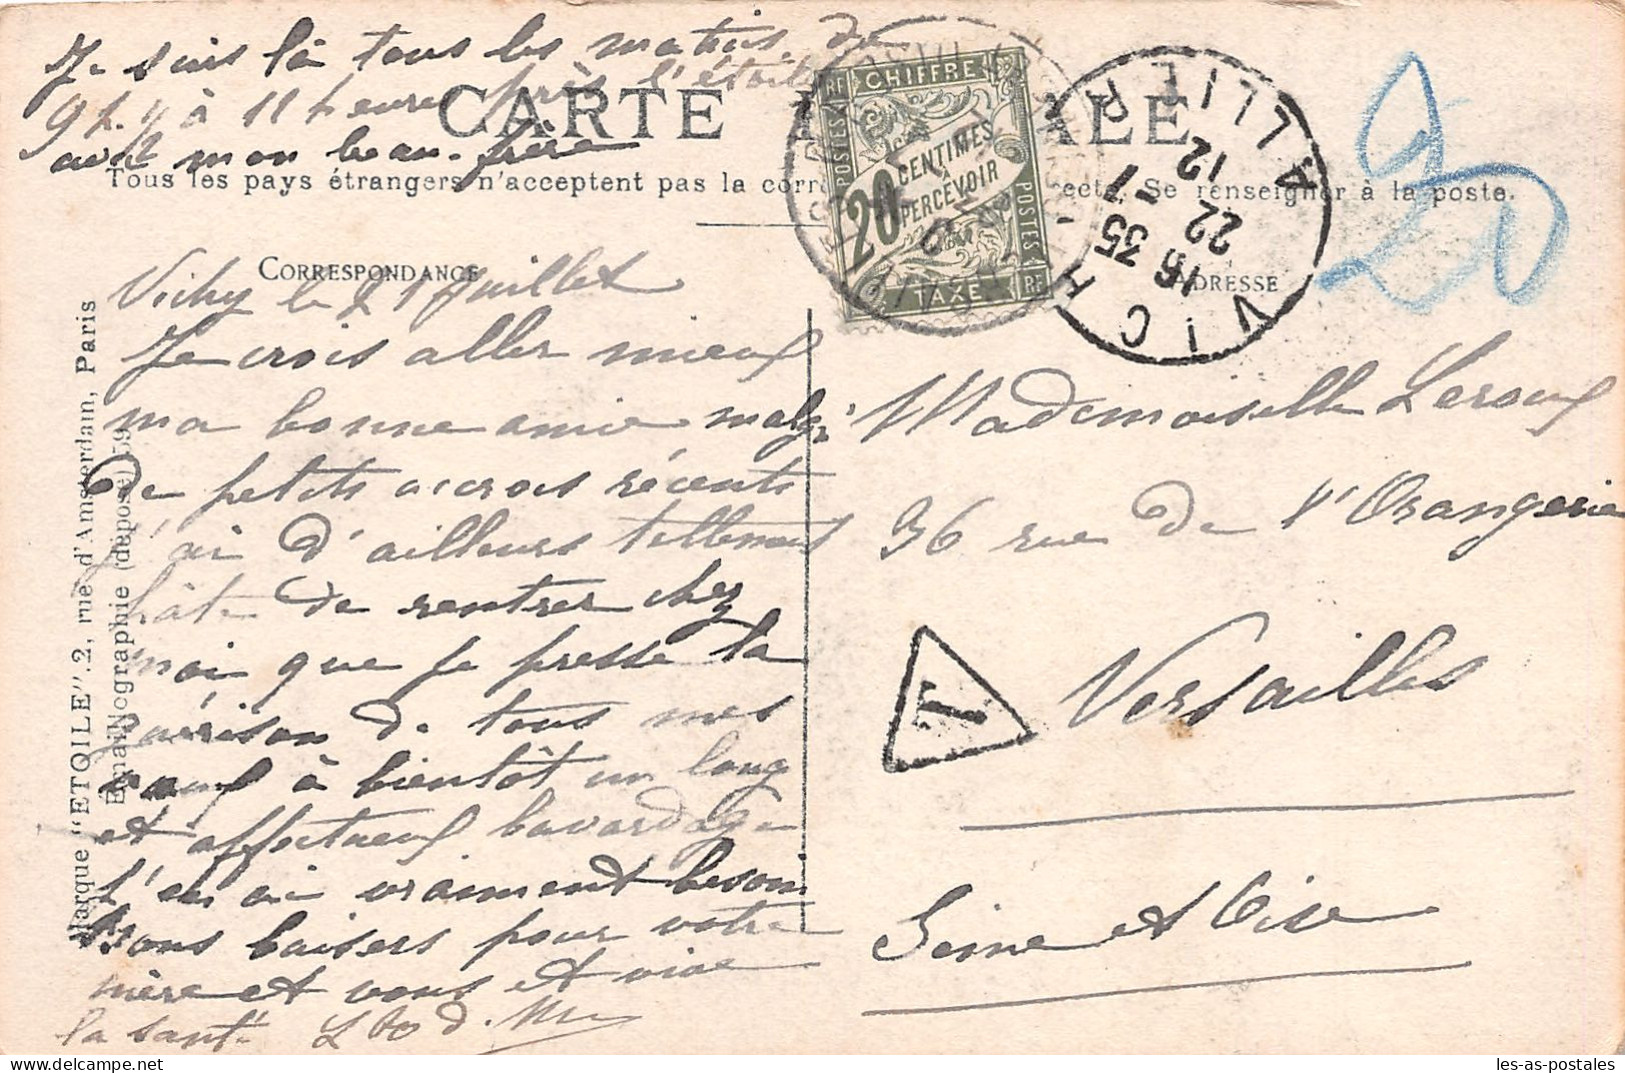 Je suis là tous les matins de
9h. ½ à 11 heures près l'étoile
avec mon beau-frère
CARTE
Tous les pays étrangers n'acceptent pas la Se renseigner à la poste.
CHIFFRE
POSTES
20 CENTIMES
A
PERCEVOIR
POSTES
TAXE
RF
VICHY
ALLIER
16 35
22 - 7
12
20
CORRESPONDANCE
ADRESSE
Vichy le 21 Juillet
Je crois aller mieux
ma bonne amie malgré
de petits accrocs récents
j'ai d'ailleurs tellement
hâte de rentrer chez
moi que je presse la
guérison de tous mes
maux à bientôt un long
et affectueux bavardage
j'en ai vraiment besoin
Bons baisers pour votre
mère et vous et vive
la santé
Mademoiselle Leroux
36 rue de l'Orangerie
T
Versailles
Seine et Oise
Marque "ETOILE". 2, rue d'Amsterdam, Paris
EmailNographie (déposé)
les-as-postales